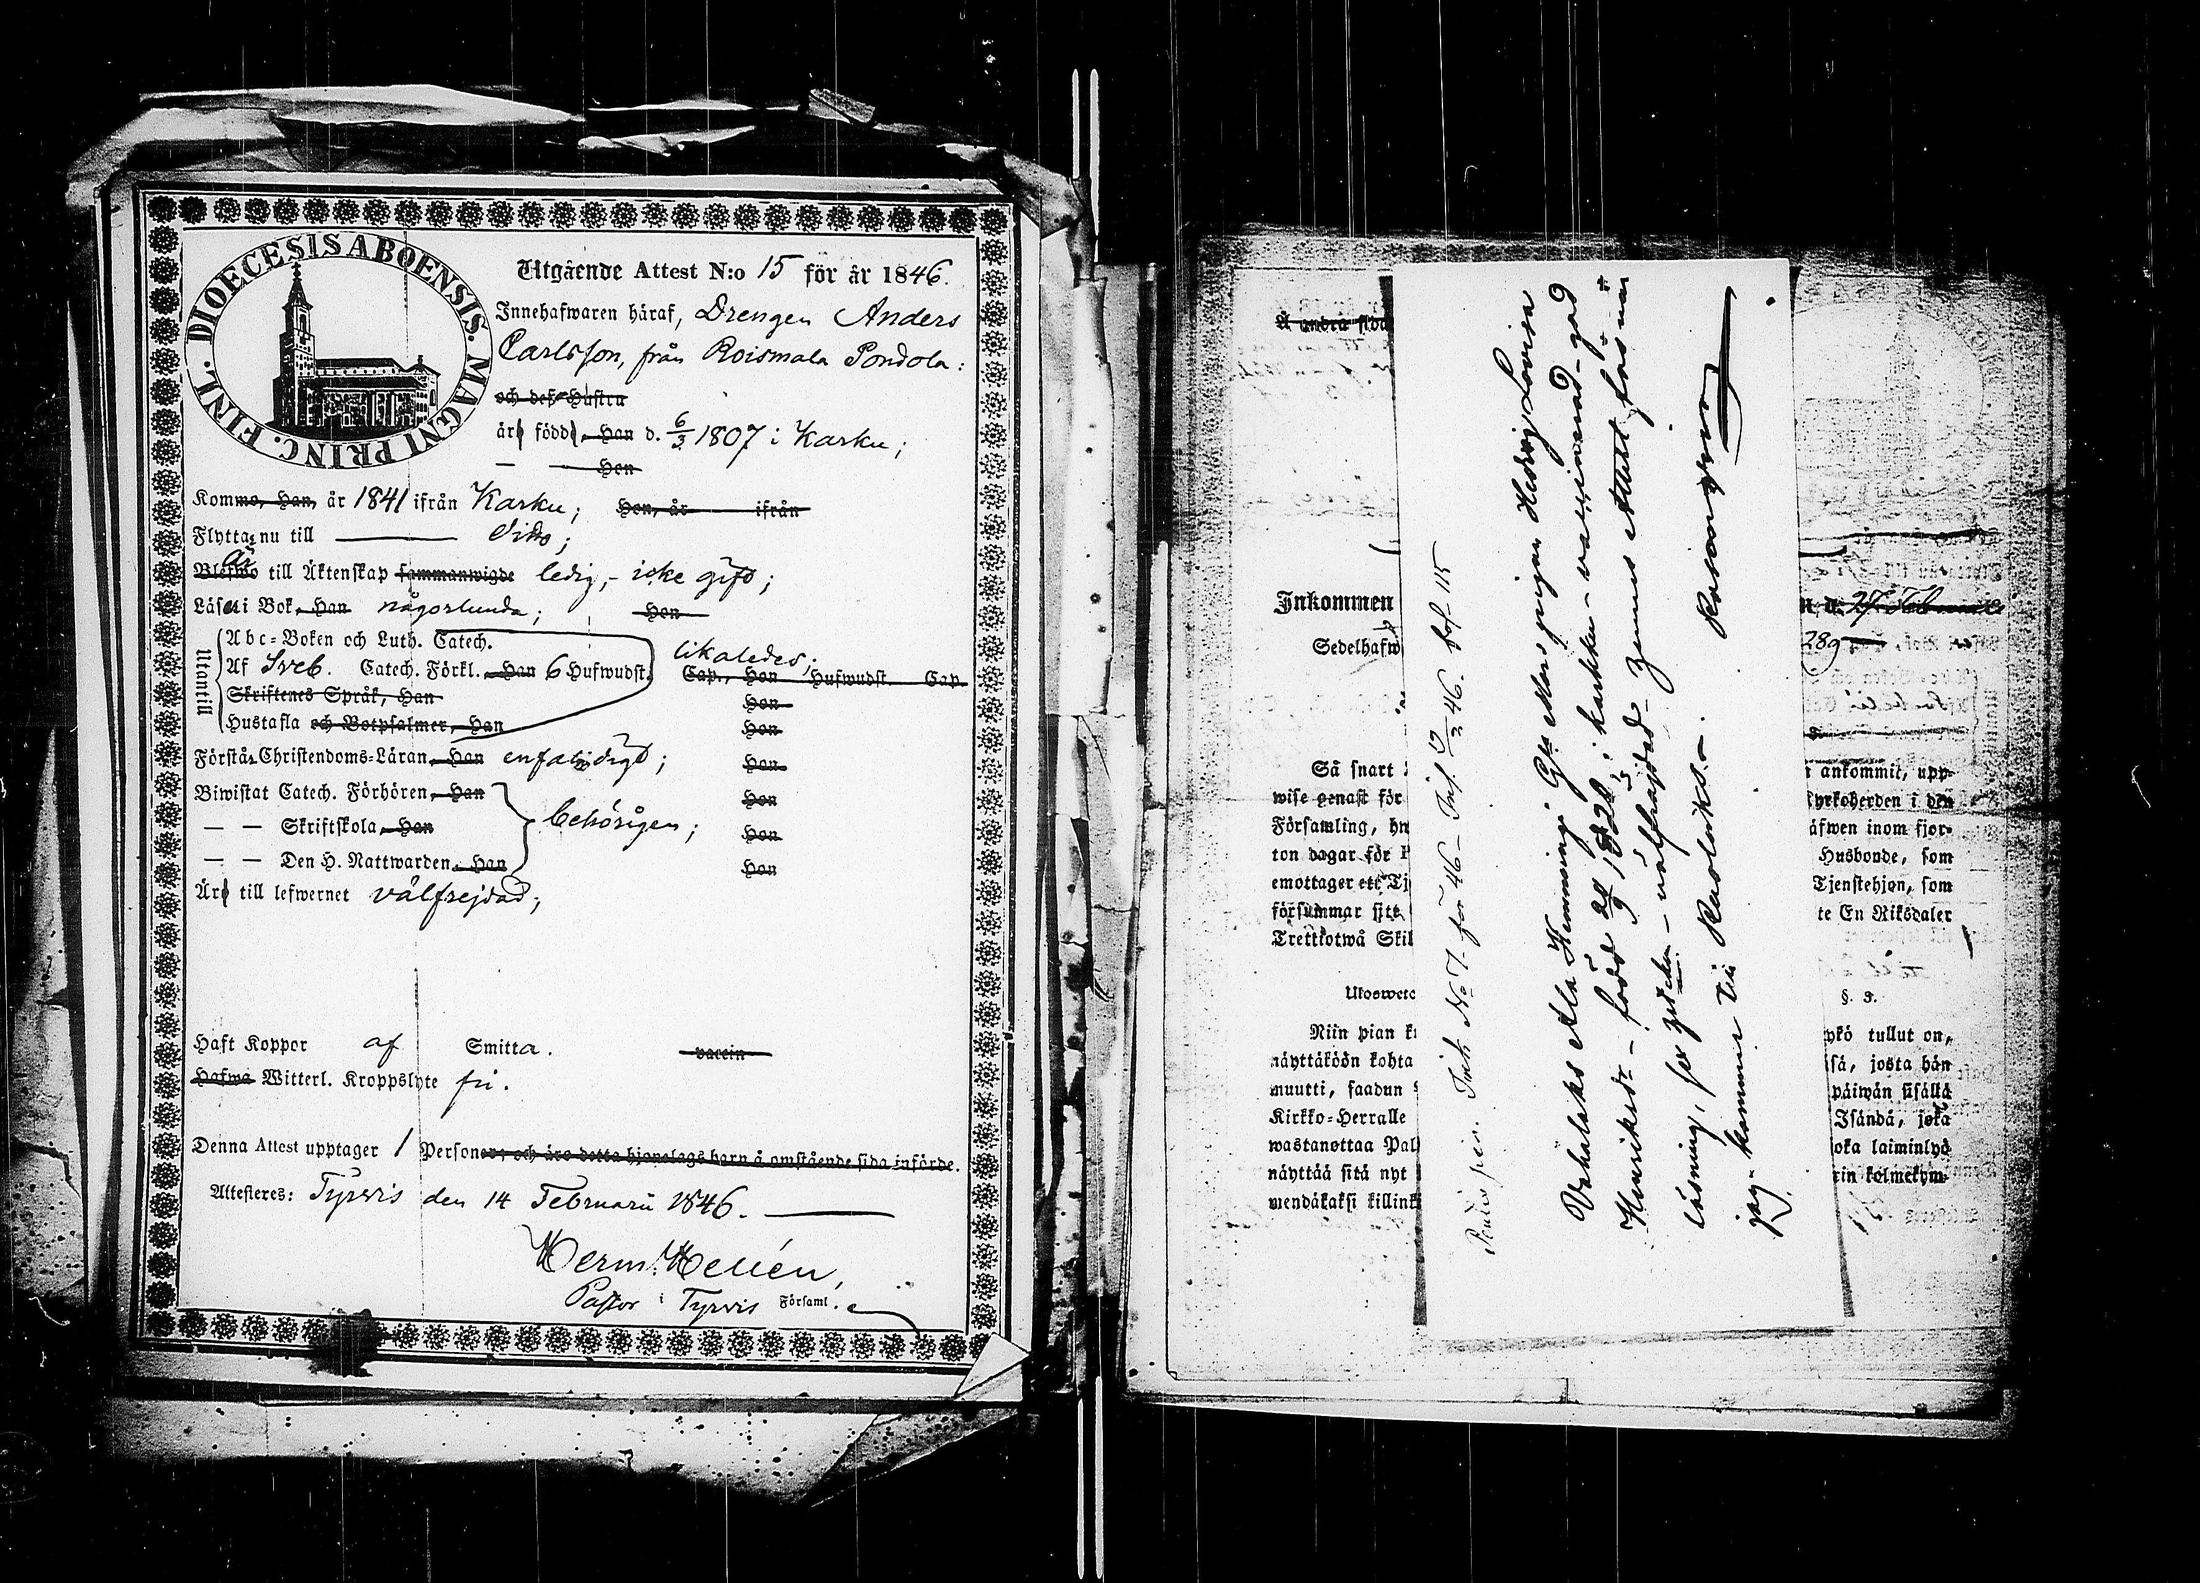 DIOECESIS ABOENSIS. MAGNI PRINC. FINL.
Utgående Attest N:o 15 för år 1846.
Innehafwaren häraf, Drengen Anders
Carlsson, från Roismala Pondola:
och dess Hustru
är född, Han d. 6/3 1807 i Karku;
— Hon
Kommo, Han, år 1841 ifrån Karku; Hon, år ifrån
Flytta nu till dito;
är
Blefwo till Äktenskap sammanwigde ledig, - icke gift;
Läsa i Bok, Han någorlunda; Hon
Utantill
Abc-Boken och Luth. Catech.
likaledes;
Af Sveb. Catech. Förkl. Han 6 Hufwudst. Cap., Hon Hufwudst. Cap.
Skriftenes Språk, Han Hon
Hustafla och Botpsalmer, Han Hon
Förstå Christendoms-Läran, Han enfaldigt; Hon
Biwistat Catech. Förhören, Han Hon
— — Skriftskola, Han behörigen; Hon
— — Den H. Nattwarden, Han Hon
Är till lefwernet välfrejdad;
Haft Koppor af Smitta. vaccin
Hafwa Witterl. Kroppslyte fri.
Denna Attest upptager 1 Personer, och äro detta hjonelags barn å omstående sida införde.
Attesteres: Tyrvis den 14 Februarii 1846.
Herm. Hellén,
Pastor i Tyrvis Församl.
Å andra sida
Inkommen n, d. 27 Februarii
Sedelhafw 289
Så snart ankommit, upp-
wise genast för Kyrkoherden i den
Församling, hw äfwen inom fjor-
ton dagar för Husbonde, som
emottager ett Tj Tjenstehjon, som
försummar sitt te En Riksdaler
Trettiotwå Skil
Ulosweto §. 3.
Niin pian k ykö tullut on,
näyttäköön kohta sä, josta hän
muutti, saadun päiwän sisällä
Kirkko-Herralle Isändä, joka
wastanottaa Pal oka laiminlyö
näyttää sitä nyt rin kolmekym-
mendäkaksi killink
N:o 7 för 46 - 46. fol 115
Ala Hemmings Mons pigan Hedvig Lovisa
Henriksdr - född 29/9 1828 i Karkku - vaccinerad - god
läsning, - välfrejdad -
kommer till